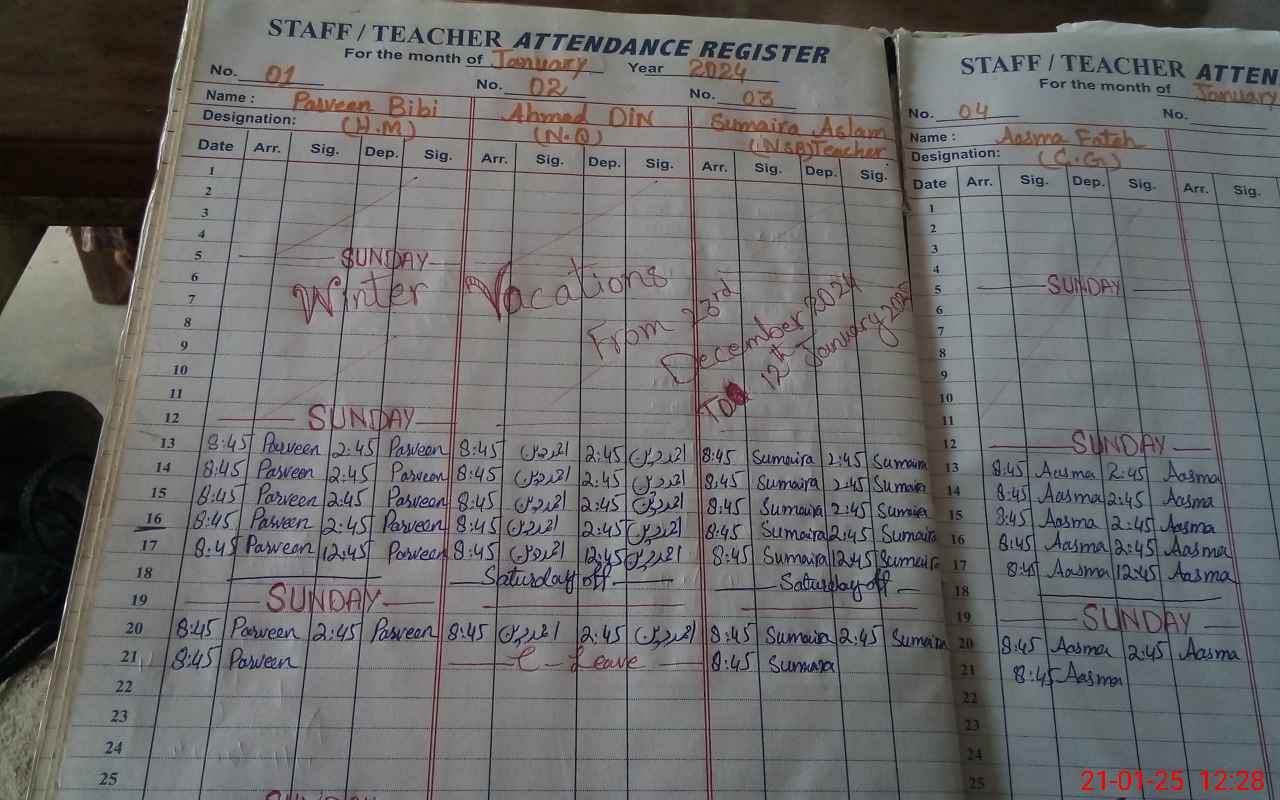 STAFF / TEACHER ATTENDANCE REGISTER
For the month of January Year 2024
No. 01 No. 02 No. 03
Name : Parveen Bibi Ahmad DIN Sumaira Aslam
Designation: (H.M) (N.Q) (NSB)Teacher
Date Arr. Sig. Dep. Sig. Arr. Sig. Dep. Sig. Arr. Sig. Dep. Sig.
1
2
3
4
5 SUNDAY
6
7 Winter Vacations
8 From 23rd
9 December 2024
10 To 12th January 2025
11
12 SUNDAY
13 8:45 Parveen 2:45 Parveen 8:45 احمد دین 2:45 احمد دین 8:45 Sumaira 2:45 Sumaira
14 8:45 Parveen 2:45 Parveen 8:45 احمد دین 2:45 احمد دین 8:45 Sumaira 2:45 Sumaira
15 8:45 Parveen 2:45 Parveen 8:45 احمد دین 2:45 احمد دین 8:45 Sumaira 2:45 Sumaira
16 8:45 Parveen 2:45 Parveen 8:45 احمد دین 2:45 احمد دین 8:45 Sumaira 2:45 Sumaira
17 8:45 Parveen 12:45 Parveen 8:45 احمد دین 12:45 احمد دین 8:45 Sumaira 12:45 Sumaira
18 Saturday off Saturday off
19 SUNDAY
20 8:45 Parveen 2:45 Parveen 8:45 احمد دین 2:45 احمد دین 8:45 Sumaira 2:45 Sumaira
21 8:45 Parveen C-Leave 8:45 Sumaira
22
23
24
25
STAFF / TEACHER ATTEN
For the month of January
No. 04 No.
Name : Aasma Fateh
Designation: (C.G)
Date Arr. Sig. Dep. Sig. Arr. Sig.
1
2
3
4
5 SUNDAY
6
7
8
9
10
11
12 SUNDAY
13 8:45 Aasma 2:45 Aasma
14 8:45 Aasma 2:45 Aasma
15 8:45 Aasma 2:45 Aasma
16 8:45 Aasma 2:45 Aasma
17 8:45 Aasma 12:45 Aasma
18
19 SUNDAY
20 8:45 Aasma 2:45 Aasma
21 8:45 Aasma
22
23
24
25
21-01-25 12:28